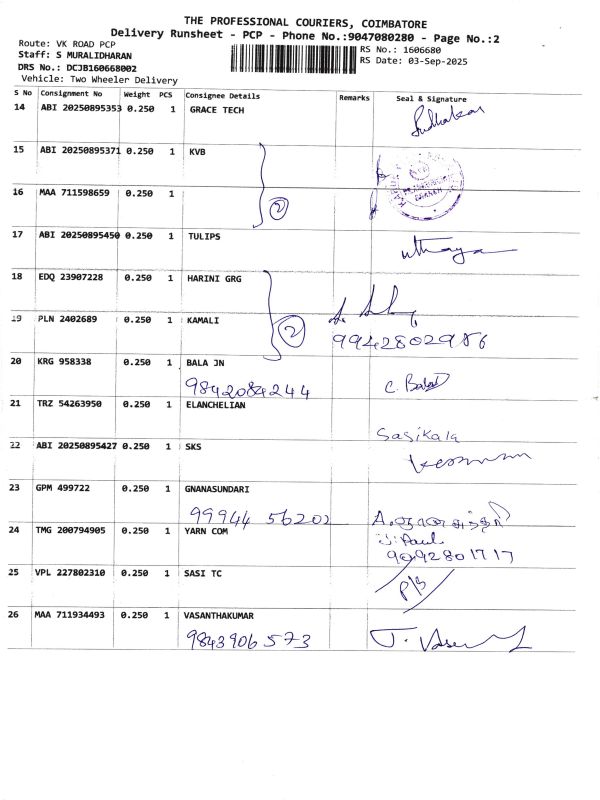 THE PROFESSIONAL COURIERS, COIMBATORE
Delivery Runsheet - PCP - Phone No.:9047080280 - Page No.:2
Route: VK ROAD PCP
Staff: S MURALIDHARAN
DRS No.: DCJB160668002
Vehicle: Two Wheeler Delivery
RS No.: 1606680
RS Date: 03-Sep-2025
S No Consignment No Weight PCS Consignee Details Remarks Seal & Signature
14 ABI 20250895353 0.250 1 GRACE TECH Sudhakar
15 ABI 20250895371 0.250 1 KVB
16 MAA 711598659 0.250 1
2
17 ABI 20250895450 0.250 1 TULIPS uthaya
18 EDQ 23907228 0.250 1 HARINI GRG
19 PLN 2402689 0.250 1 KAMALI
2
9942802986
20 KRG 958338 0.250 1 BALA JN
9842084244 C. Balaji
21 TRZ 54263950 0.250 1 ELANCHELIAN
Sasikala
22 ABI 20250895427 0.250 1 SKS
23 GPM 499722 0.250 1 GNANASUNDARI
99944 56202 A.ஞானசுந்தரி
24 TMG 200794905 0.250 1 YARN COM
9092801717
25 VPL 227802310 0.250 1 SASI TC
P/B
26 MAA 711934493 0.250 1 VASANTHAKUMAR
9843906573 J. Vasan